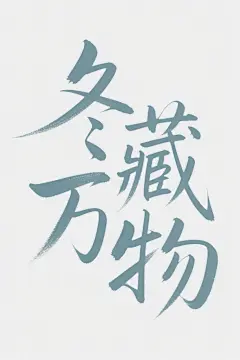 冬藏
万物